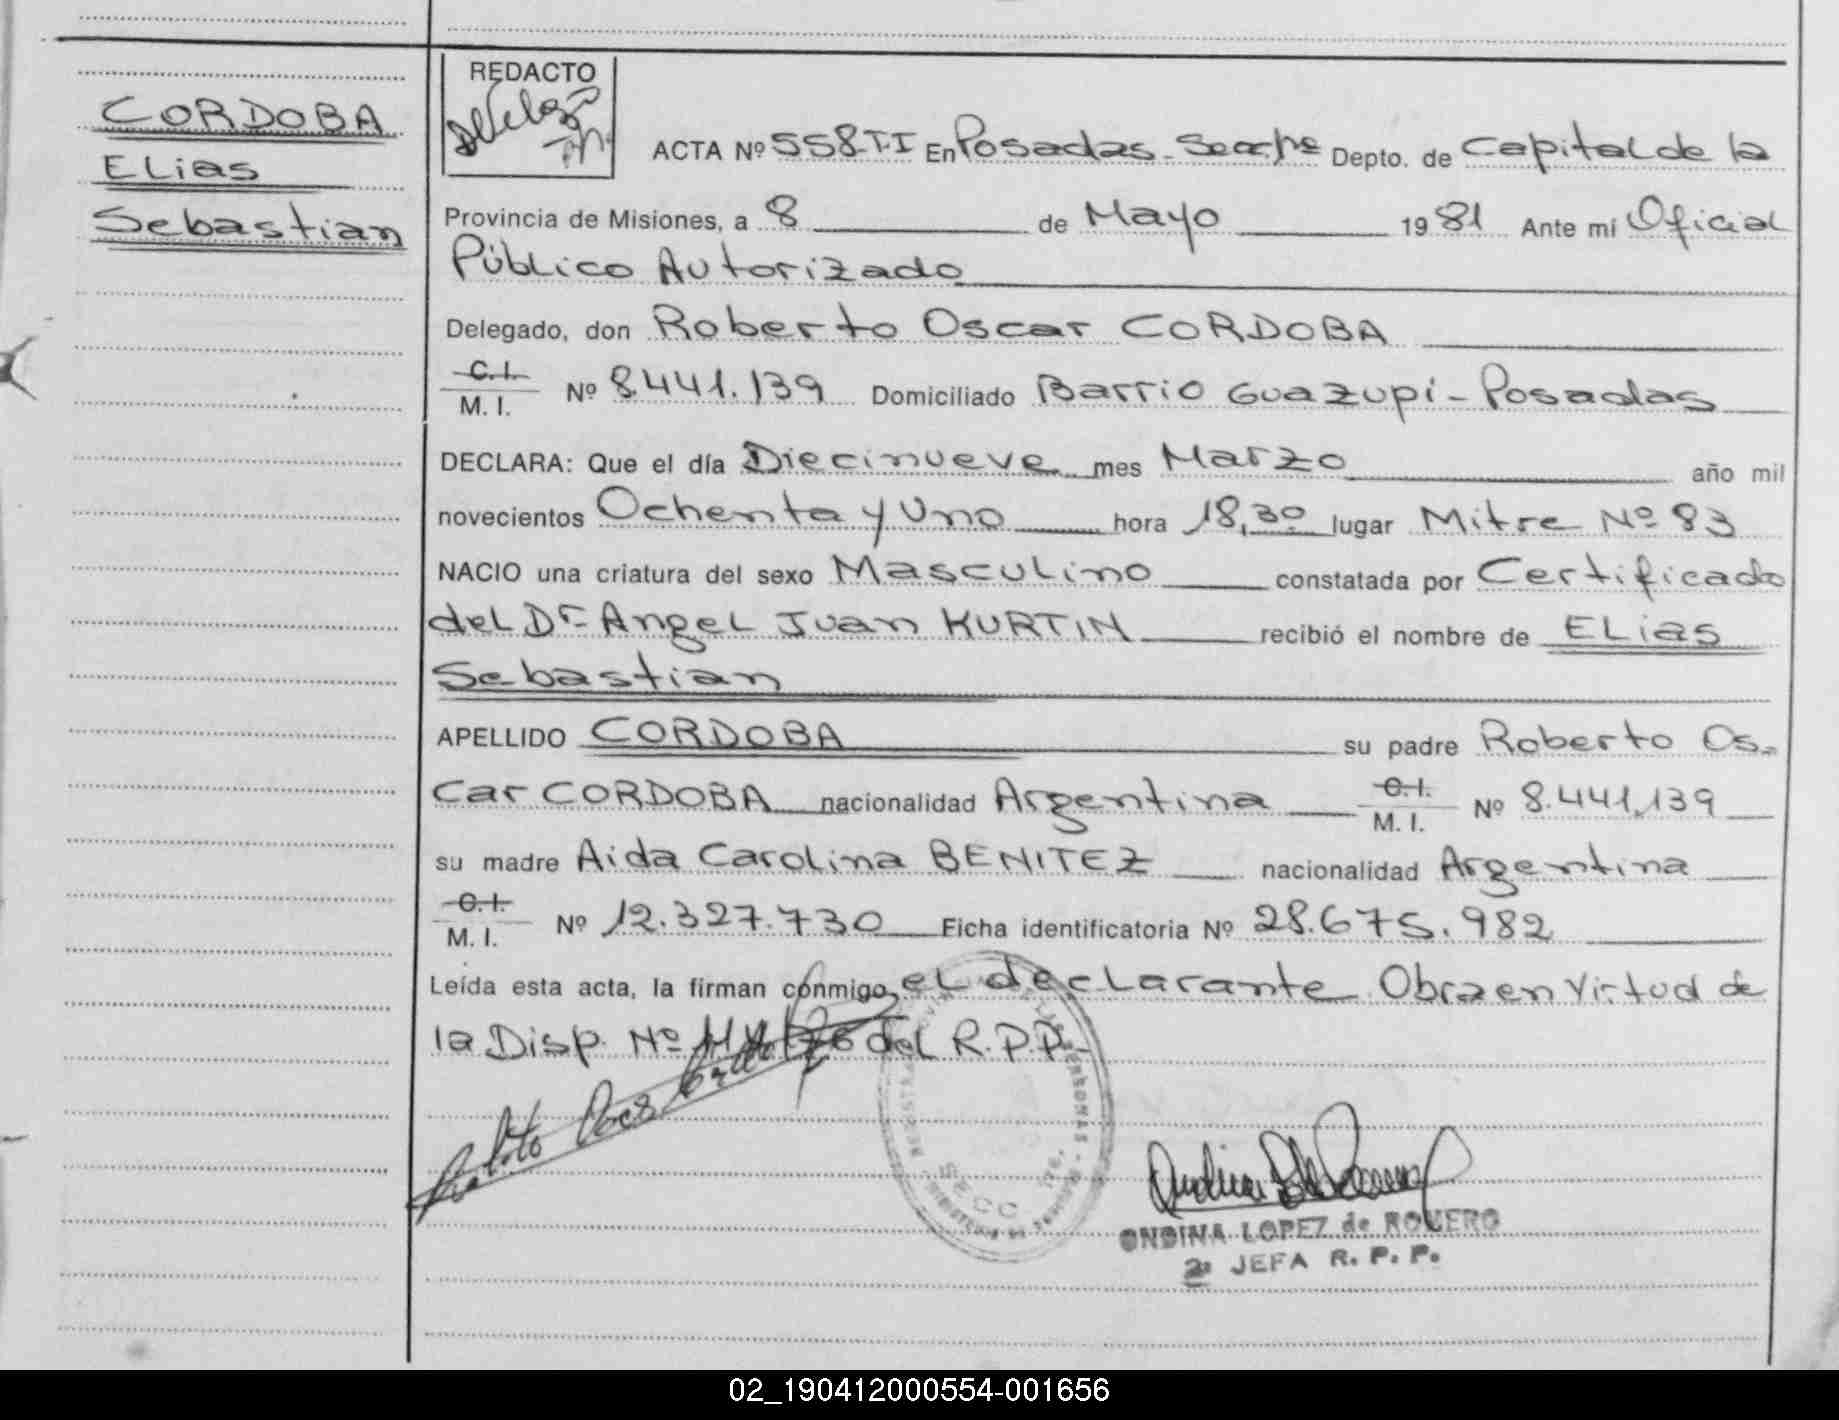 CORDOBA
ELias
Sebastian
REDACTO
ACTA Nº 558 T-I En Posadas - Depto. de Capital de la
Provincia de Misiones, a 8 de Mayo 1981 Ante mí Oficial
Público Autorizado
Delegado, don Roberto Oscar CORDOBA
C.I.
M. I. Nº 8.441.139 Domiciliado Barrio Guazupí - Posadas
DECLARA: Que el día Diecinueve mes Marzo año mil
novecientos Ochenta y Uno hora 18,30 lugar Mitre Nº 83
NACIO una criatura del sexo Masculino constatada por Certificado
del Dr. Angel Juan KURTIN recibió el nombre de ELias
Sebastian
APELLIDO CORDOBA su padre Roberto Os-
car CORDOBA nacionalidad Argentina C.I. Nº 8.441.139
M. I.
su madre Aida Carolina BENITEZ nacionalidad Argentina
C.I.
M. I. Nº 12.327.730 Ficha identificatoria Nº 28.675.982
Leída esta acta, la firman conmigo, el declarante Obra en Virtud de
la Disp. Nº del R.P.P.-
Roberto Oscar Cordoba
SECC
ONDINA LOPEZ de ROMERO
2ª JEFA R. P. P.
02_190412000554-001656